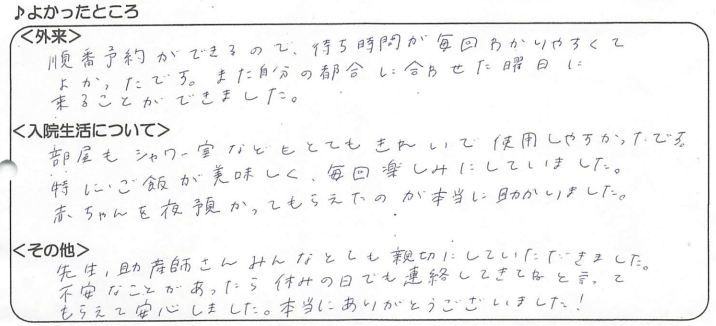 ♪よかったところ
<外来>
順番予約ができるので、待ち時間が毎回わかりやすくて
よかったです。また自分の都合に合わせた曜日に
来ることができました。
<入院生活について>
部屋もシャワー室などもとてもきれいで使用しやすかったです。
特にご飯が美味しく、毎回楽しみにしていました。
赤ちゃんを夜預かってもらえたのが本当に助かりました。
<その他>
先生、助産師さんみんなとても親切にしていただきました。
不安なことがあったら休みの日でも連絡してきてねと言って
もらえて安心しました。本当にありがとうございました!